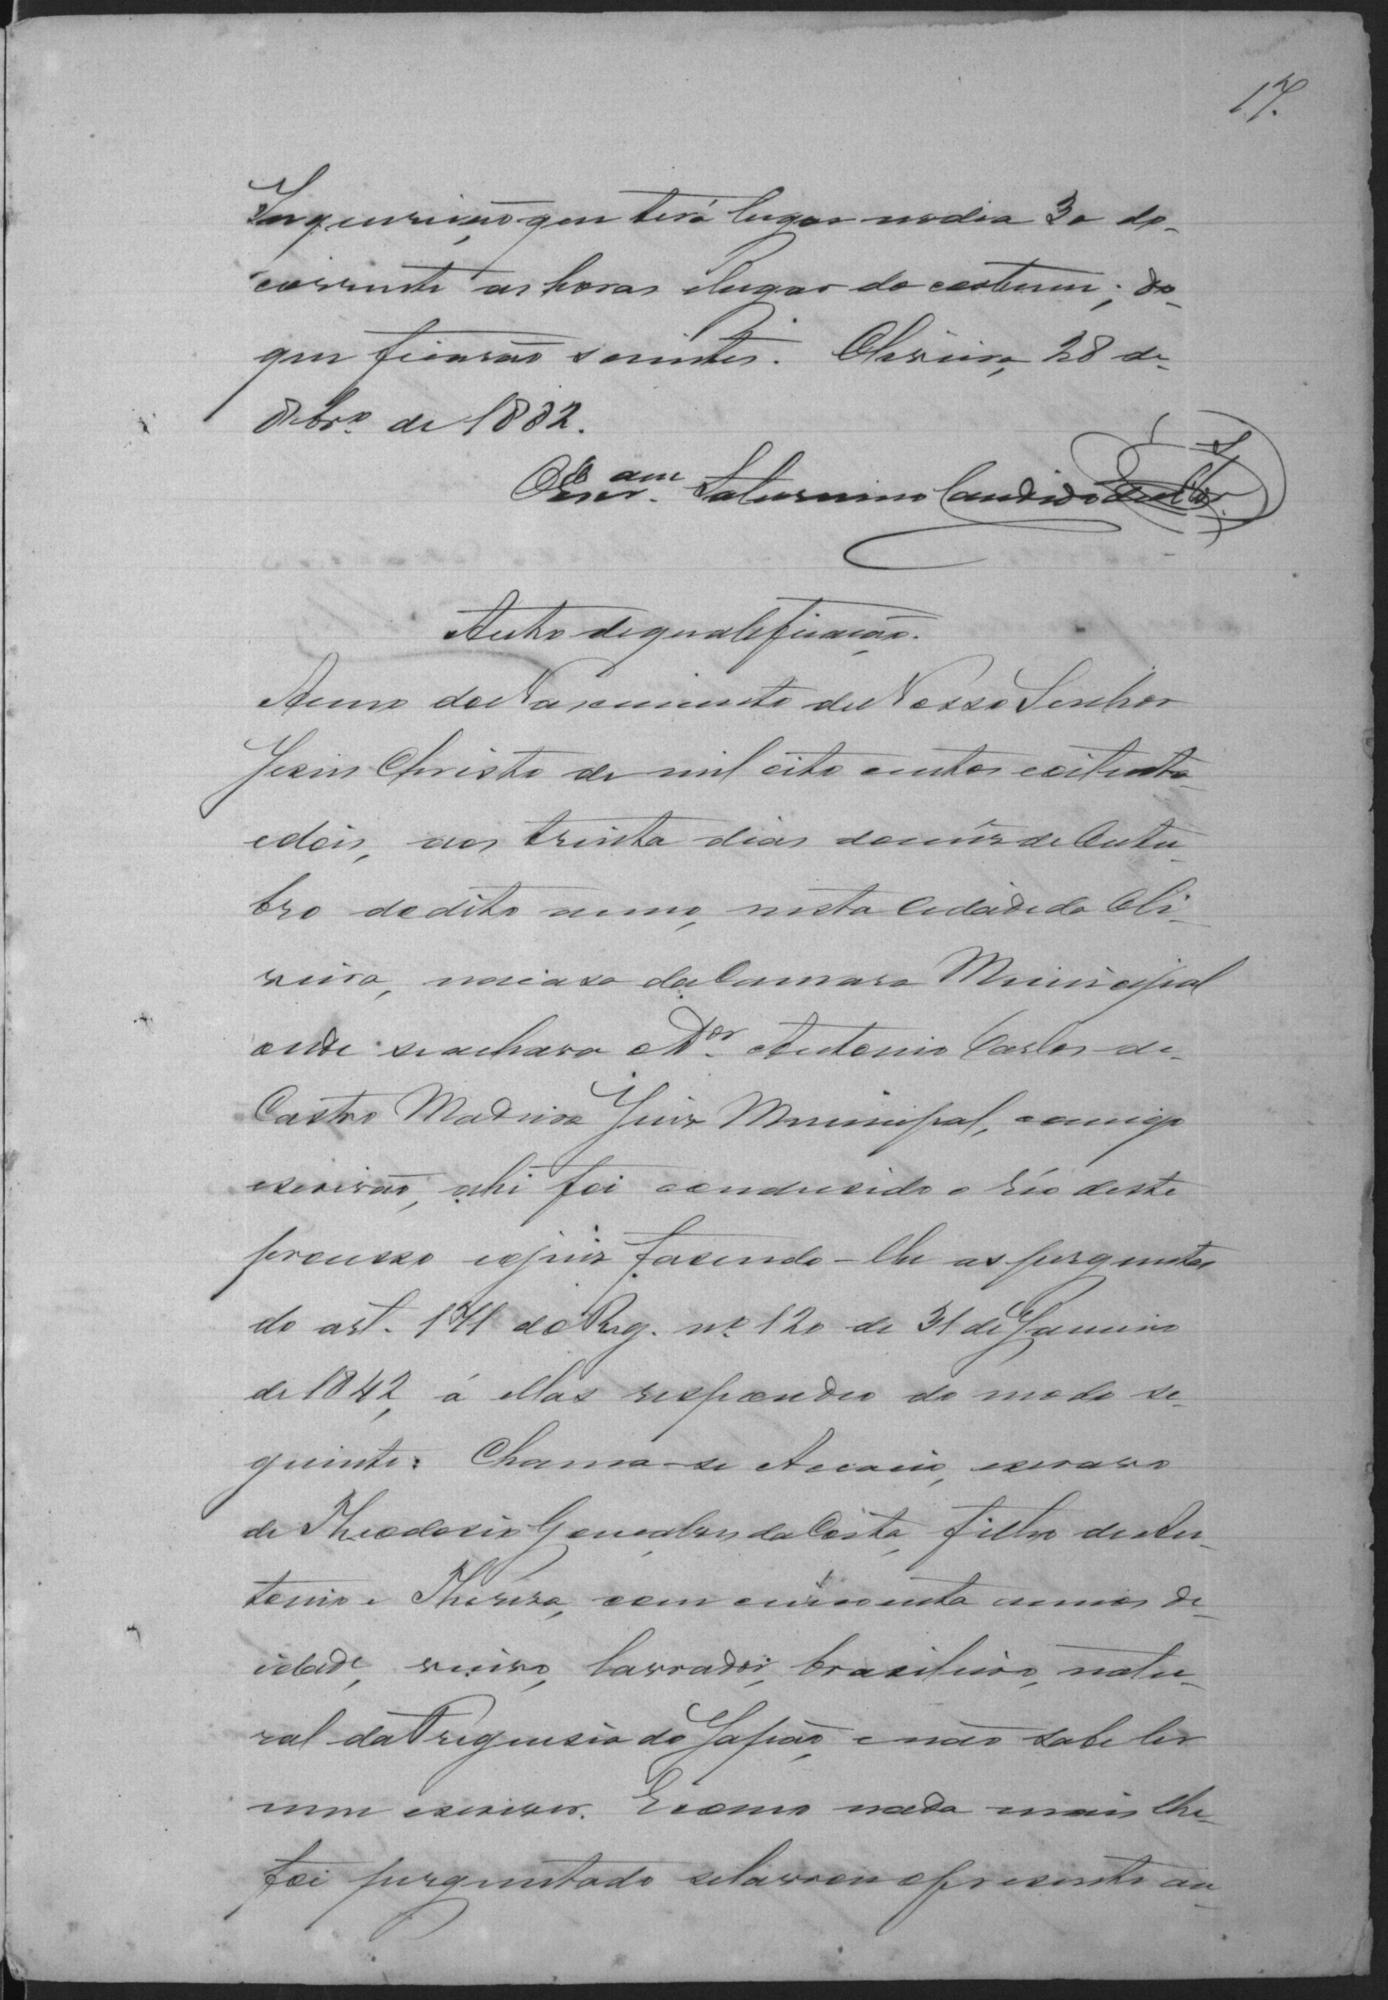 17.
Inquirição que terá lugar no dia 30 do
corrente as horas e lugar do costume; do
que ficarão scientes. Oliveira, 28 de
8brº. de 1882.
O Escr.am Saturnino Candido
Auto de qualificação.
Anno do Nascimento de Nosso Senhor
Jesus Christo de mil oito centos e oitenta
e dois, aos trinta dias do mês de Outu-
bro do dito anno, nesta Cidade da Oli-
veira, na casa da Camara Municipal
onde se achava o Dor. Antonio Carlos de
Castro Madeira Juiz Municipal, comigo
escrivão, ahi foi condusido o réo deste
processo e o juiz fasendo-lhe as perguntas
do art. 171 do Reg. nº 120 de 31 de Janeiro
de 1842, á ellas respondeo do modo se-
guinte: Chama-se Acacio, escravo
de Theodosio Gonçalves da Costa, filho de An-
tonio e Thereza, com cincoenta annos de
idade, viuvo, lavrador, brasileiro, natu-
ral da Freguesia do Japão, e não sabe ler
nem escrever. E como nada mais lhe
foi perguntado se lavrou o presente au-